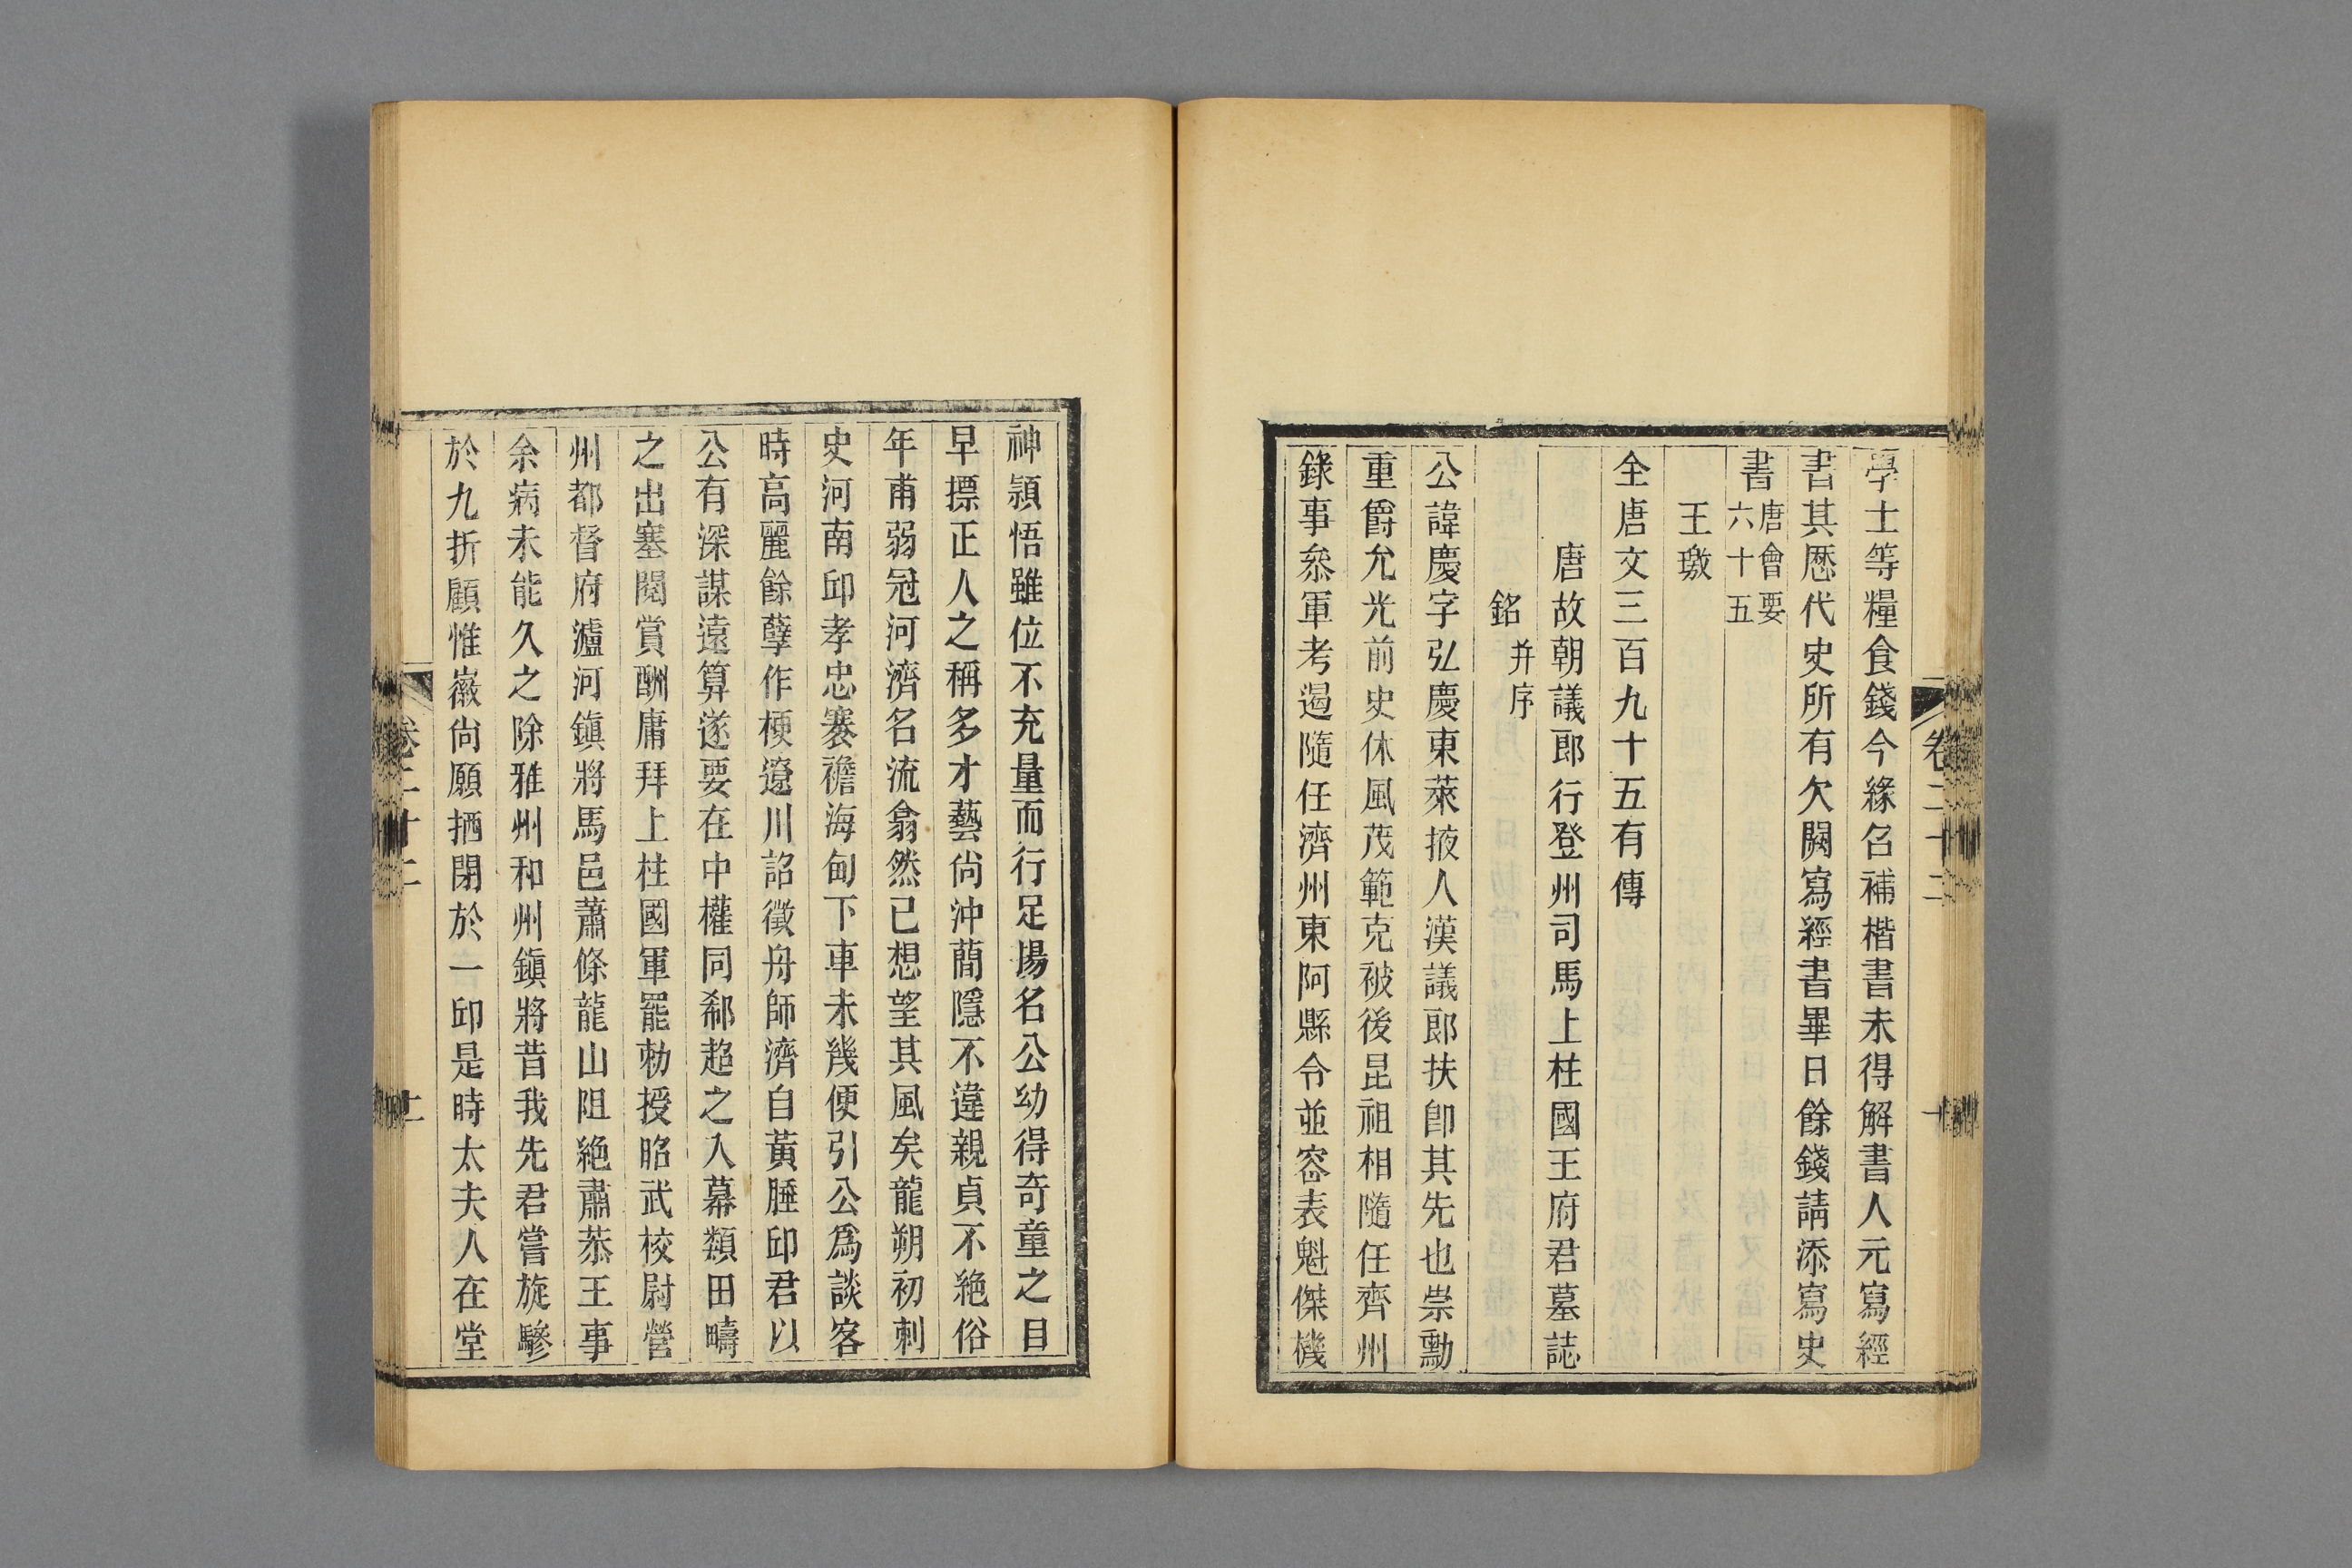 學士等糧食錢今緣召補楷書未得解書人元寫經
書其歷代史所有欠闕寫經書畢日餘錢請添寫史
書唐會要六十五
王璥
全唐文三百九十五有傳
唐故朝議郎行登州司馬上柱國王府君墓誌
銘并序
公諱慶字弘慶東萊掖人漢議郎扶卽其先也崇勳
重爵允光前史休風茂範克被後昆祖相隨任齊州
錄事叅軍考遏隨任濟州東阿縣令並容表魁傑機
卷二十二
神穎悟雖位不充量而行足揚名公幼得奇童之目
早摽正人之稱多才藝尙沖簡隱不違親貞不絶俗
年甫弱冠河濟名流翕然已想望其風矣龍朔初刺
史河南邱孝忠褰襜海甸下車未幾便引公爲談客
時高麗餘孽作梗遼川詔徵舟師濟自黃腄邱君以
公有深謀遠算遂要在中權同郗超之入幕類田疇
之出塞閱賞酬庸拜上柱國軍罷勑授昭武校尉營
州都督府瀘河鎮將馬邑蕭條龍山阻絶肅恭王事
余病未能久之除雅州和州鎮將昔我先君嘗旋驂
於九折顧惟嶶尙願捿閉於一邱是時太夫人在堂
卷二十二